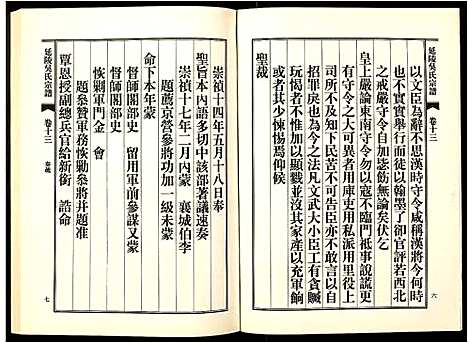 延陵吳氏宗譜
卷十三
以文臣為辭不思漢時守令咸稱漢將今何時
也不實實舉行而徒以翰墨了卻官評若西北
之戒嚴守令自加毖飭無論矣伏乞
皇上嚴論東南守令勿以寇不臨門祗事說謊更
有守令之人實異者用庫吏用私派用里役上
苦不可告臣所亦不敢言以自
招罪戾也今之法凡文武大小臣工有貪贓
玩愒者不惟加以顯戮並沒其家產以充軍餉
或者其少悚惕焉仰候
聖裁
六
延陵吳氏宗譜
卷十三
奏議
崇禎十四年五月十八日奉
聖旨本內語多切中該部著議速奏
崇禎十七年二月內蒙 襄城伯李
題薦京營參將功加一級未蒙
命下本年蒙
督師閣部史 留用軍前參謀又蒙
督師閣部史
恢剿軍門金 會
題參贊軍務恢剿參將并題准
覃恩授副總兵官給新銜 誥命
七